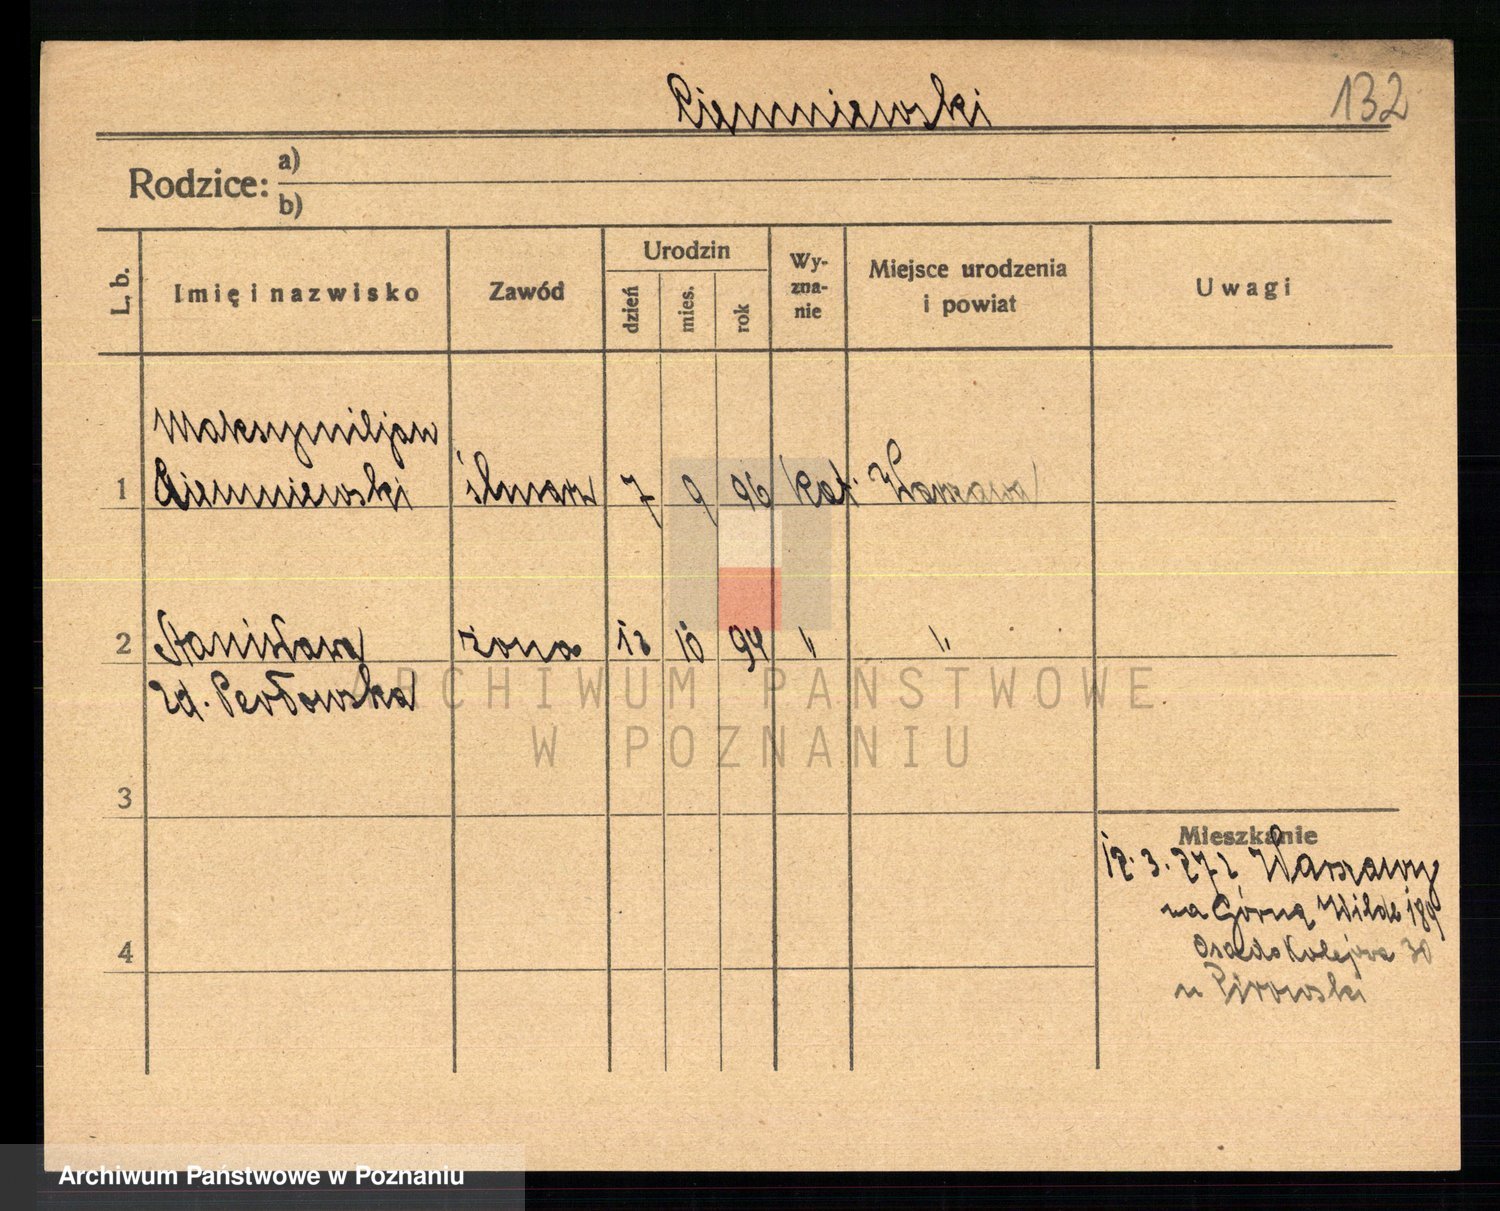 Ciemniewski
132
Rodzice: a)
b)
L. b.
Imię i nazwisko
Zawód
Urodzin
dzień
mies.
rok
Wy-
zna-
nie
Miejsce urodzenia
i powiat
Uwagi
Maksymiljan
1 Ciemniewski ślusarz 7 9 96 kat. Warszawa
2 Stanisława żona 13 10 94 " "
zd. Perłowska
3
Mieszkanie
12. 3. 27 z Warszawy
na Górną Wildę 189
4
30
u
ARCHIWUM PAŃSTWOWE
W POZNANIU
Archiwum Państwowe w Poznaniu